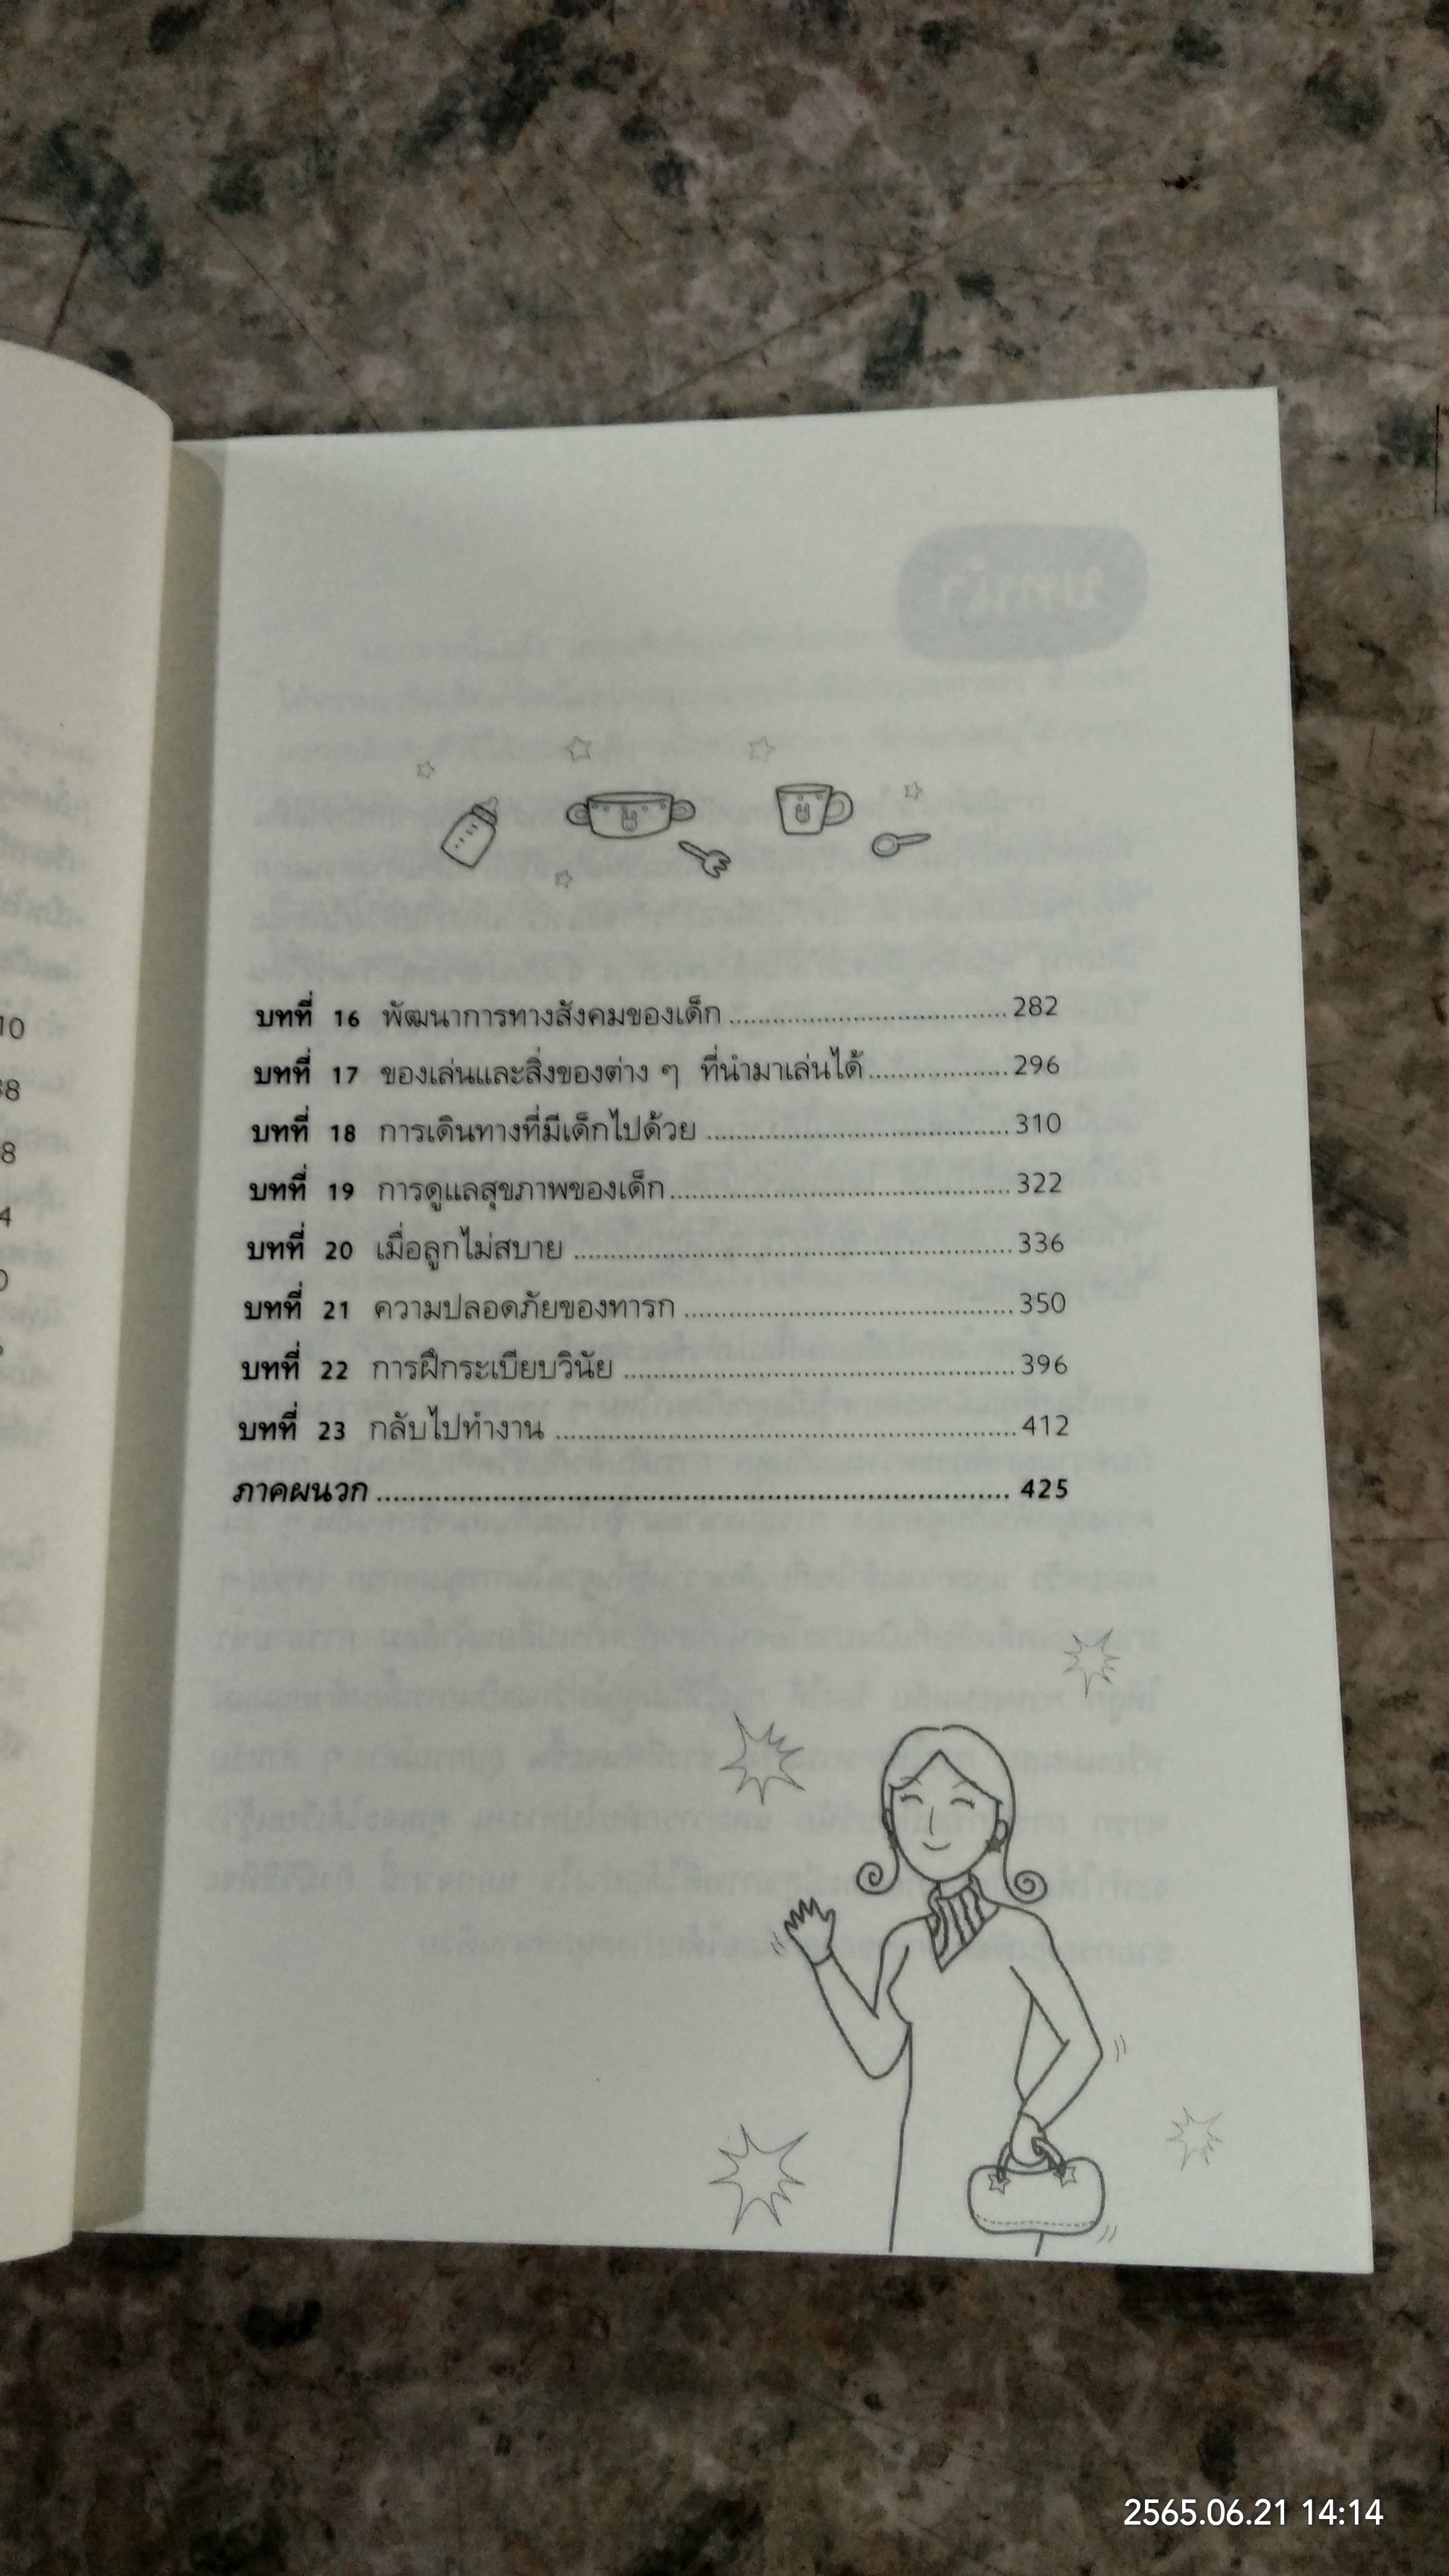 บทที่ 16 พัฒนาการทางสังคมของเด็ก ........................................ 282
บทที่ 17 ของเล่นและสิ่งของต่าง ๆ ที่นำมาเล่นได้ .................... 296
บทที่ 18 การเดินทางที่มีเด็กไปด้วย ........................................... 310
บทที่ 19 การดูแลสุขภาพของเด็ก ................................................ 322
บทที่ 20 เมื่อลูกไม่สบาย .............................................................. 336
บทที่ 21 ความปลอดภัยของทารก .............................................. 350
บทที่ 22 การฝึกระเบียบวินัย ....................................................... 396
บทที่ 23 กลับไปทำงาน ................................................................ 412
ภาคผนวก ........................................................................................ 425
2565.06.21 14:14